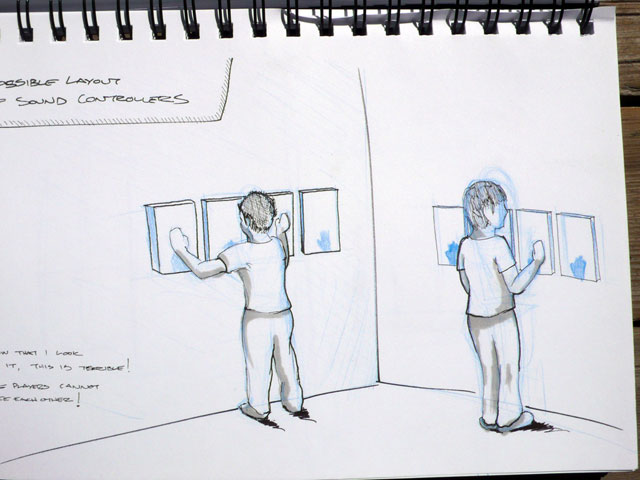 OSSIBLE LAYOUT
SOUND CONTROLLERS
THAT I LOOK
IT, THIS IS TERRIBLE!
PLAYERS CANNOT
EACH OTHER!